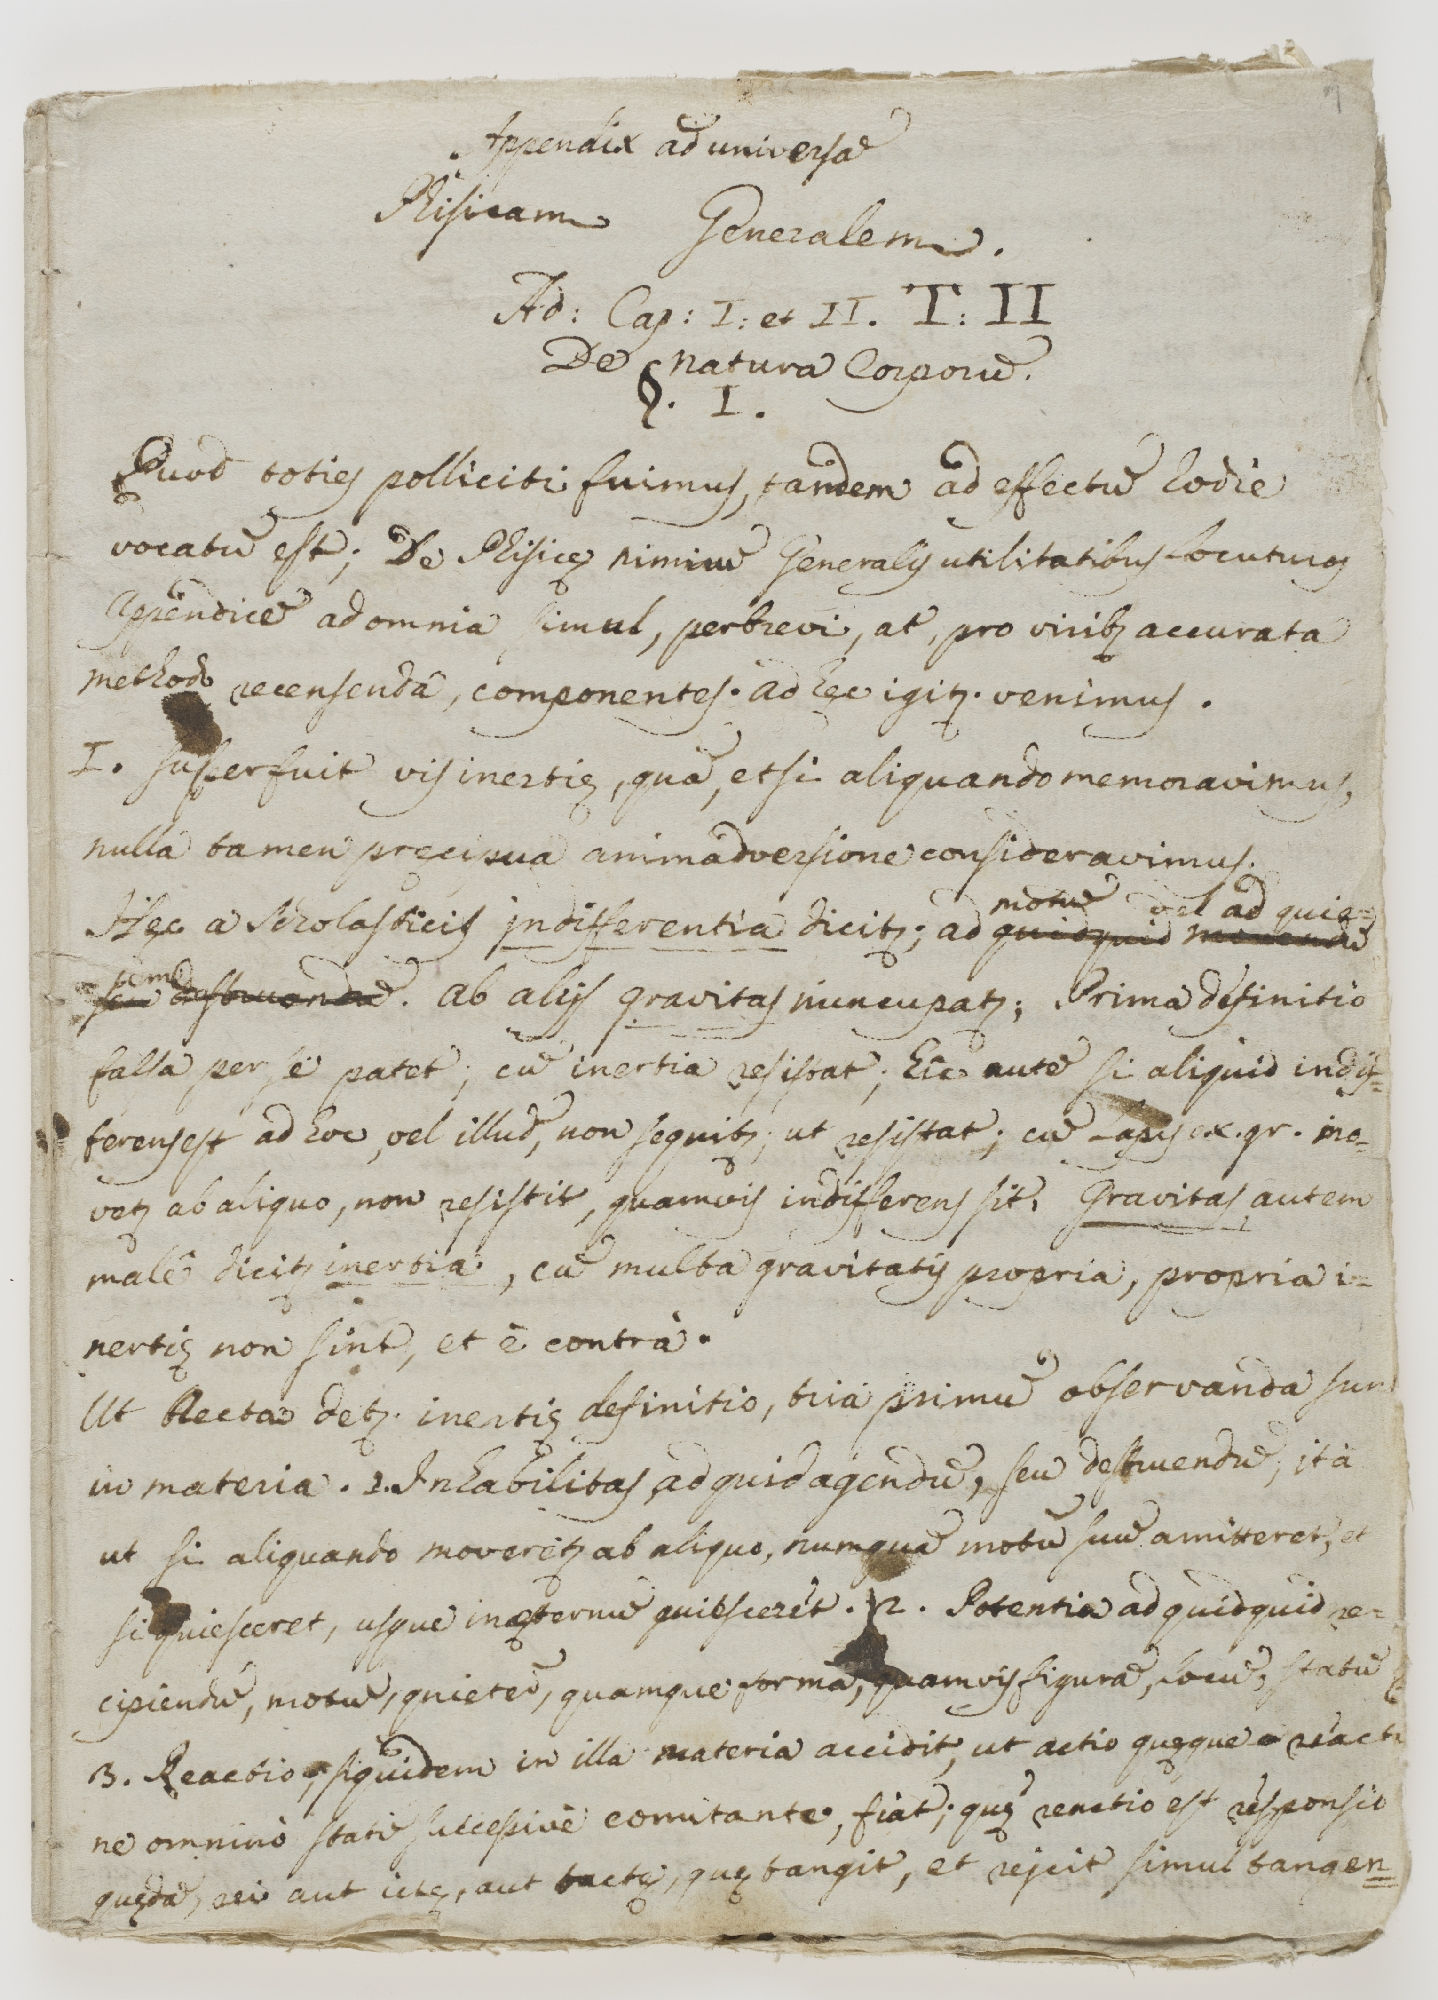 Appendix ad universã
Phisicam Generalem.
Ad: Cap: I: et II. T: II
De natura Corporũ.
§. I.
Quod toties polliciti fuimus, tandem ad effectũ hodie
vocatũ est; De Phisicę nimiũ Generalis utilitatibus locuturos
Appendicẽ ad omnia simul, perbrevi, at, pro viribꝫ accurata
methodo recensendã, componentes. ad hęc igitꝫ. venimus.
I. superfuit vis inertię, quã, etsi aliquando memoravimus,
nulla tamen pręcipua animadversione consideravimus.
Hęc a Scholasticis indifferentia dicitꝫ; ad motũ vel ad quie-
tem. ab alijs gravitas nuncupatꝫ; Prima definitio
falsa per se patet; cũ inertia resistat; hic autẽ si aliquid indif-
ferens est ad hoc, vel illud, non sequitꝫ, ut resistat; cũ Lapis ex. gr. mo-
vetꝫ ab aliquo, non resistit, quamvis indifferens sit. Gravitas, autem
malè dicitꝫ inertia, cũ multa gravitatis propria, propria i-
nertię non sint, et è contrà.
Ut Recta detꝫ. inertię definitio, tria primũ observanda sun
in materia. 1. Inhabilitas ad quid agendũ, seu destruendũ, ità
ut si aliquando moveretꝫ ab aliquo, numquã motũ suũ amitteret, et
si quiesceret, usque in ęternũ quiesceret. 2. Potentia ad quidquid re-
cipiendũ, motũ, quietẽ, quamque formã, quamvis figurã, locũ, statũ
3. Reactio, siquidem in illa materia accidit, ut actio quęque reactio
ne omninò statĩ successivè comitante, fiat; quę reactio est responsio
quędã, rei aut ictę, aut tactę, quę tangit, et rejcit simul tangen-